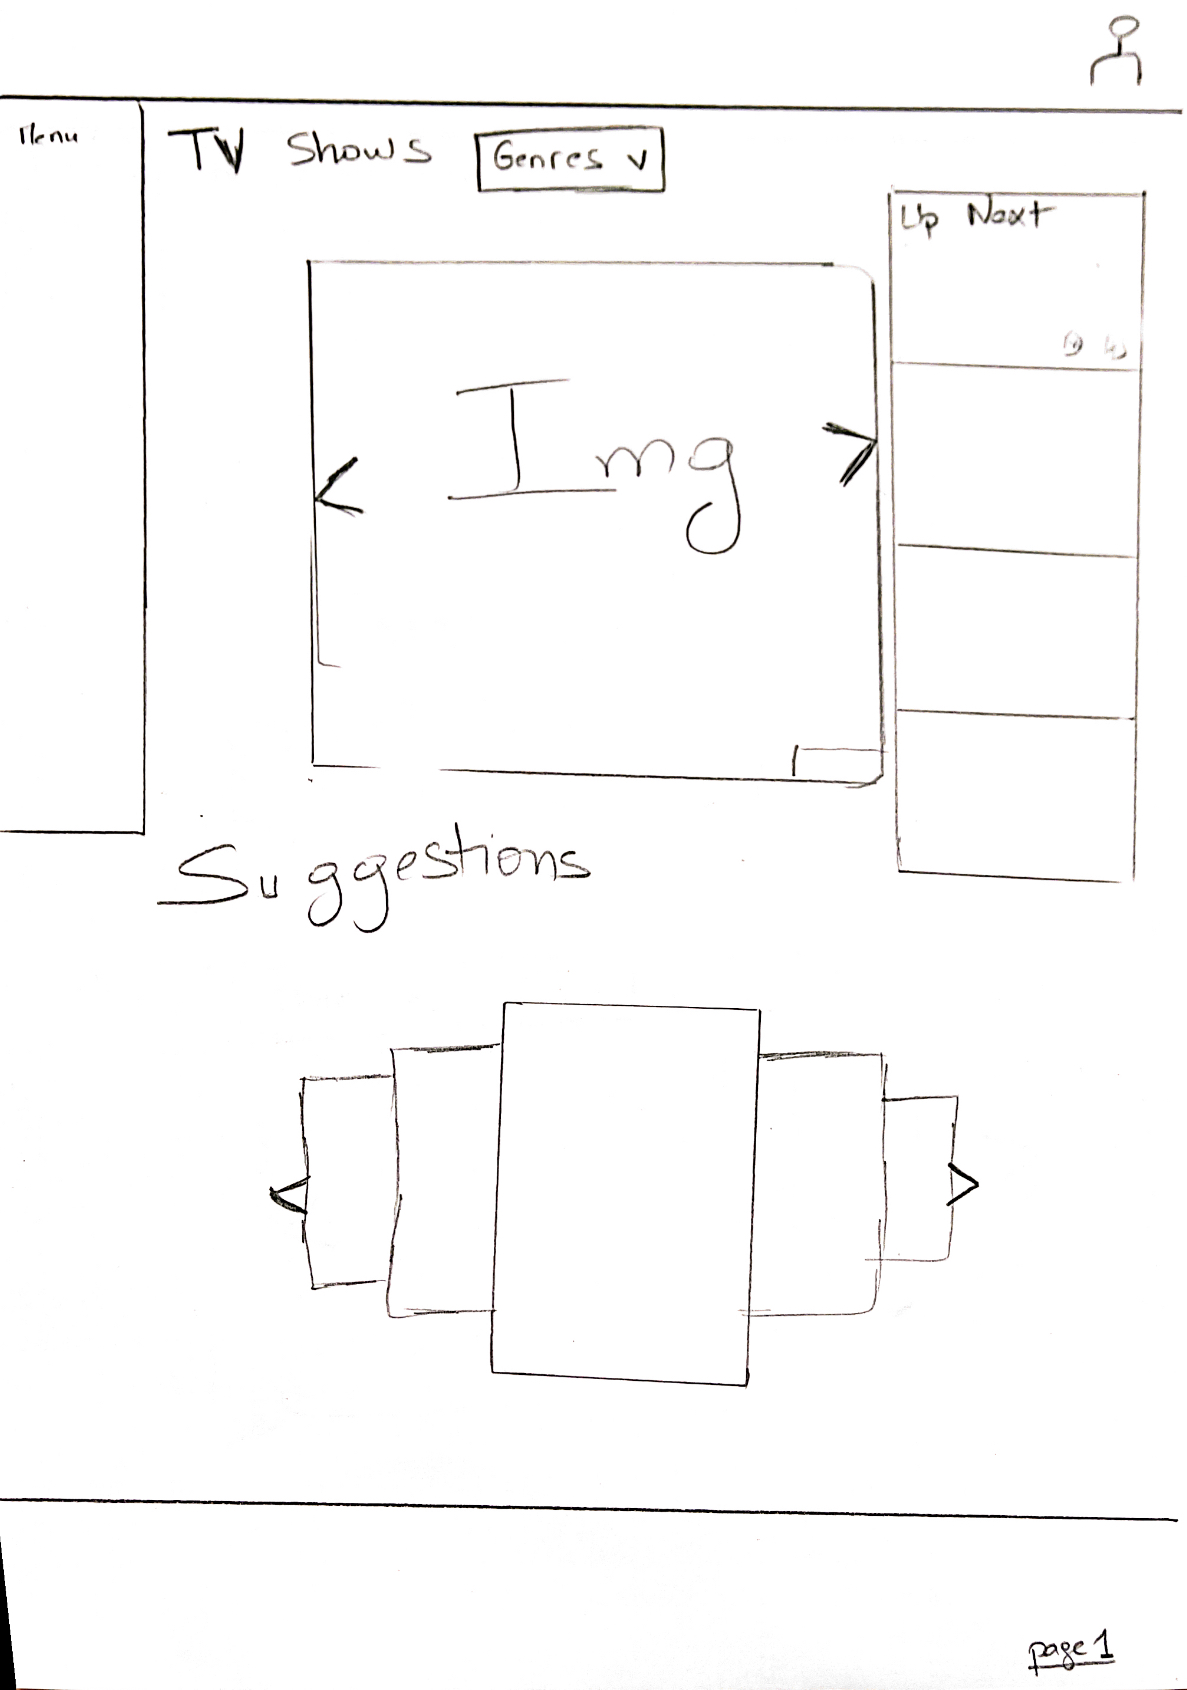 Menu
TV Shows
Genres v
Up Next
< Img >
Suggestions
< >
page 1